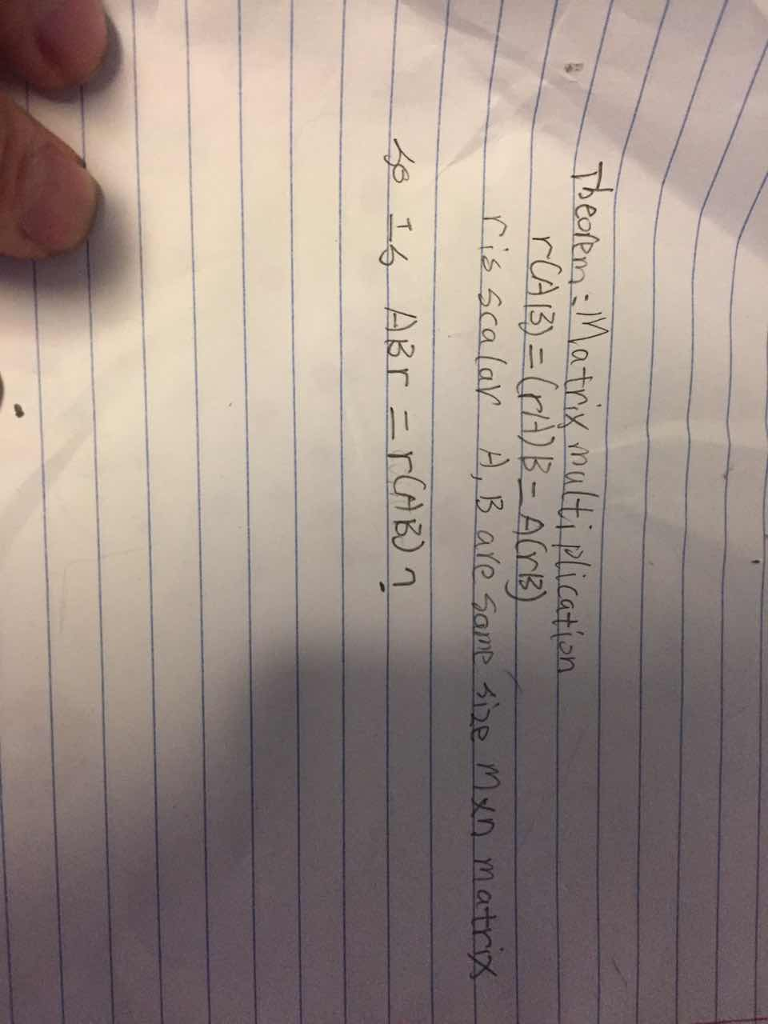 Theorem: Matrix multiplication
r(AB) = (rA)B = A(rB)
r is scalar A, B are same size mxn matrix
so Is ABr = r(AB)?